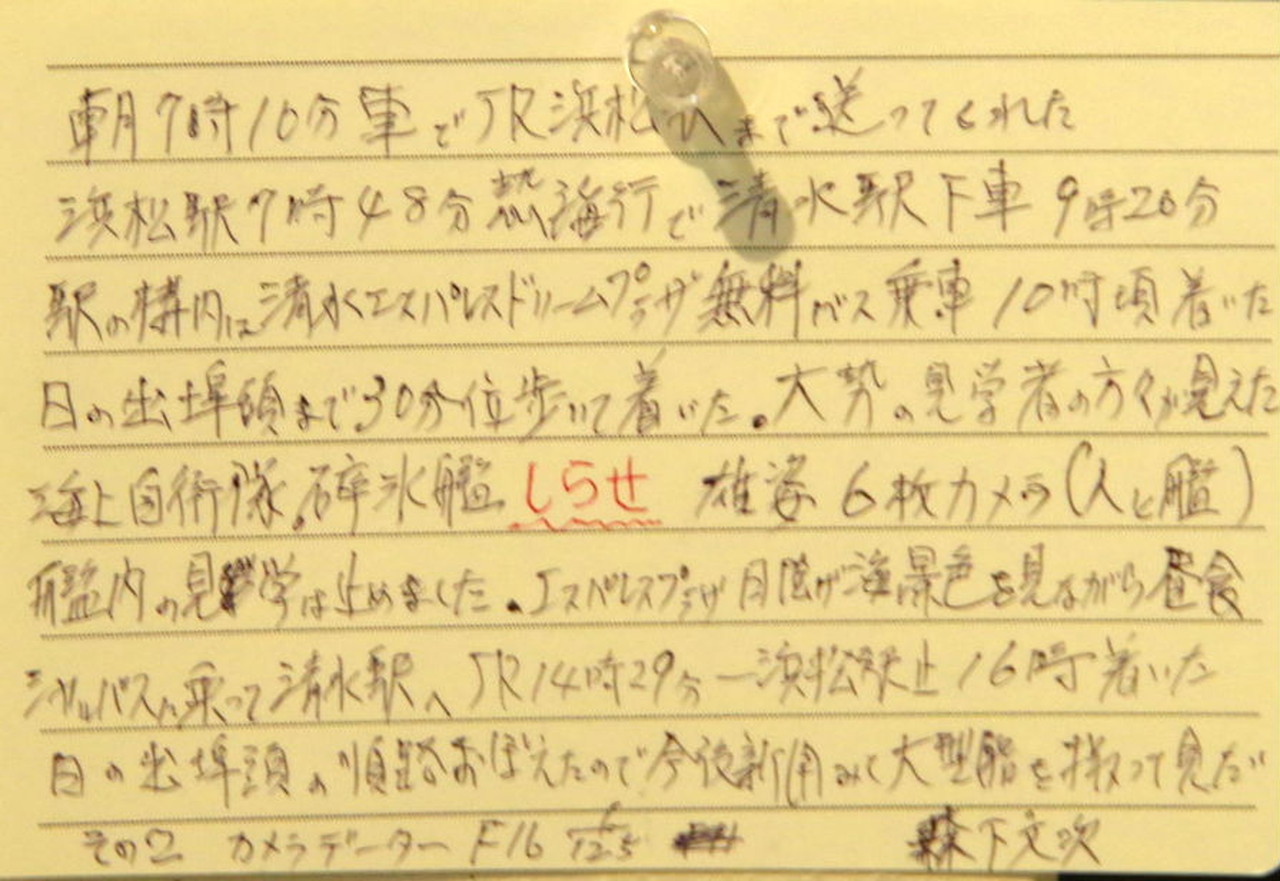 朝7時10分車でJR浜松 まで送ってくれた
浜松駅7時48分熱海行で清水駅下車9時20分
駅の構内は清水エスパルスドリームプラザ無料バス乗車10時頃着いた
日の出埠頭まで30分位歩いて着いた。大勢の見学者の方々が見えた
海上自衛隊。砕氷艦しらせ 雄姿6枚カメラ(人と艦)
艦内の見学は止めました。エスパルスプラザ 海景色を見ながら昼食
バスに乗って清水駅へJR14時29分ー浜松駅止16時着いた
日の出埠頭の順路おぼえたので今後新聞みて大型船を撮って見たい
その2 カメラデーター F16 1/125 森下文次